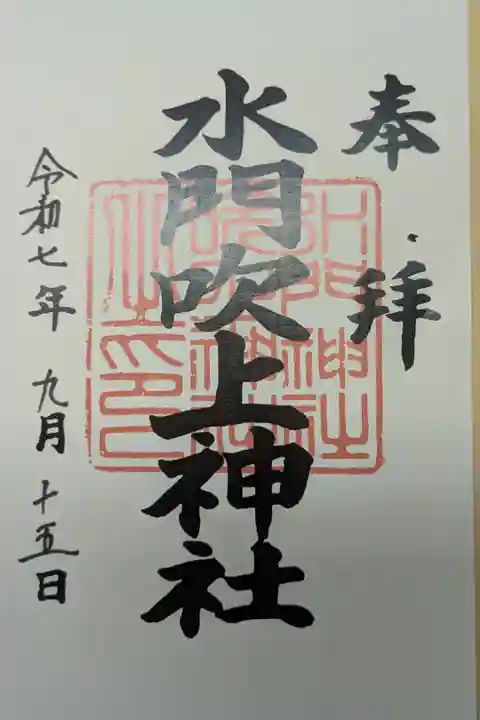 奉拝
水門吹上神社
令和七年 九月 十五日